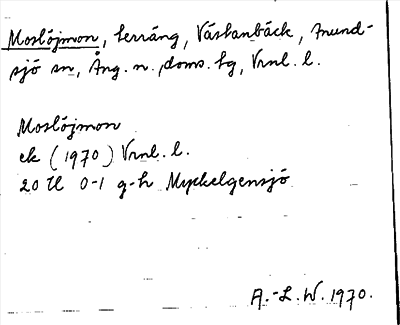 Moslöjmon, terräng, Västanbäck, Anund-
sjö sn, Ång. n. doms. tg, Vrnl. l.
Moslöjmon
ek (1970) Vrnl. l.
20 H 0-1 g-h Myckelgensjö
A.-L. W. 1970.